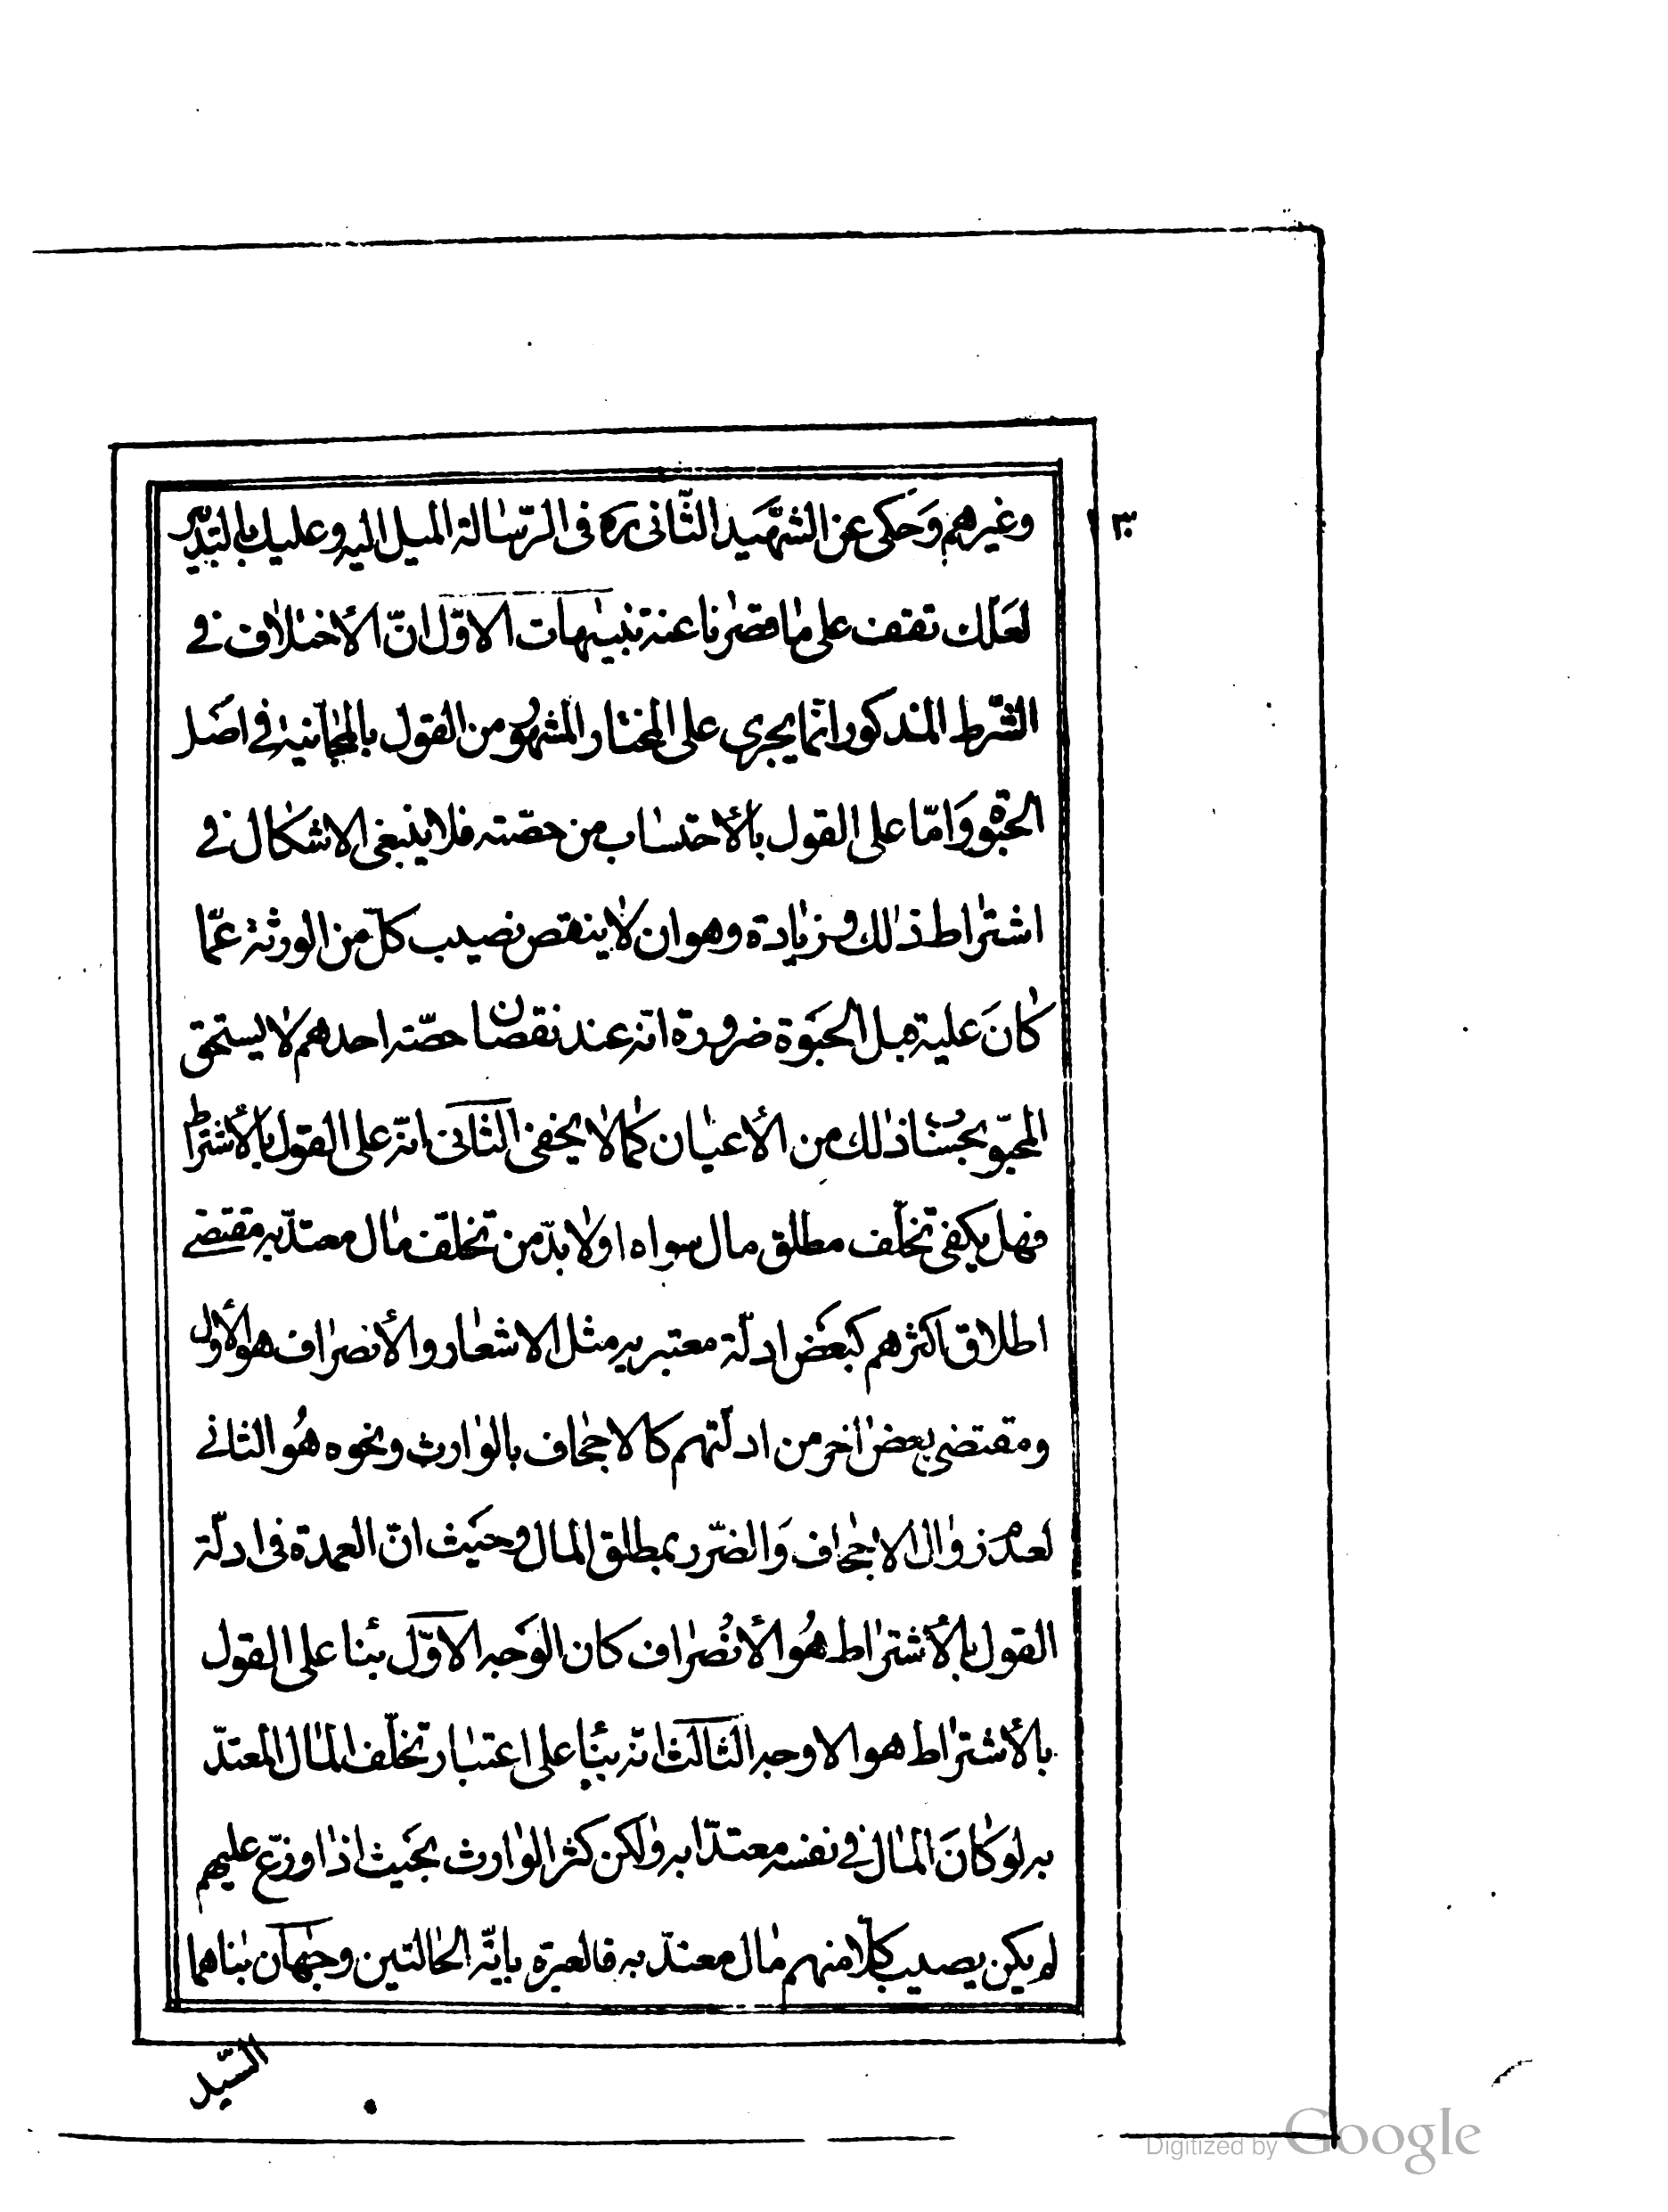 وغيرهم وَحكى عن الشهّيد الثّانى ره فى الرّسالة الميل اليه وعليك بالتدّبر
لعَلّك تقف على ما قصرنا عنه تنبيهات الاوّل انّ الأختلاف فى
الشّرط المذكور انّما يجرى على المختار والمشهور من القول بالمجّانية فى اصَل
الحبوة وَامّا على القول بالأحتساب من حصّته فلا ينبغى الاشكال فى
اشتراط ذلك وزيادة وهو ان لا ينقص نصيب كلّ من الورثة عمّا
كانَ عليه قبل الحبَوة ضرورة انّه عند نقصان حصّته احدهم لا يستحق
المحبّو بحسّنا ذلك من الأعيان كما لا يخفى الثانى انّه على القول بالأشتراط
فهل يكفى تخلّف مطلق مال سواه اولا بدّ من تخلّف مال معتدّ به مقتضى
اطلاق اكثرهم كبعَض ادلّة معتبريه مثل الاشعار والأنصراف هو الأول
ومقتضى بعض اخر من ادلّتهم كالاجحاف بالوارث ونحوه هُو الثانى
لعدم زوال الاجحاف وَالضّرر بمطلق المال وحيَث انّ العمدة فى ادلّة
القول بالأشتراط هُو الأنُصراف كان الوَجه الاوّل بنا على القول
بالأشتراط هو الاوجه الثالث انّه بناً على اعتبار تخلّف المال المعتدّ
به لو كانَ المال فى نفسه معتدّا به ولكن كثر الوارث بحَيث اذا وزّع عليهم
لم يكن يصيب كلّا منهم مال معتدّ به فالعبرة بايّة الحالتين وجهان بناهما
السّيد
Digitized by Google